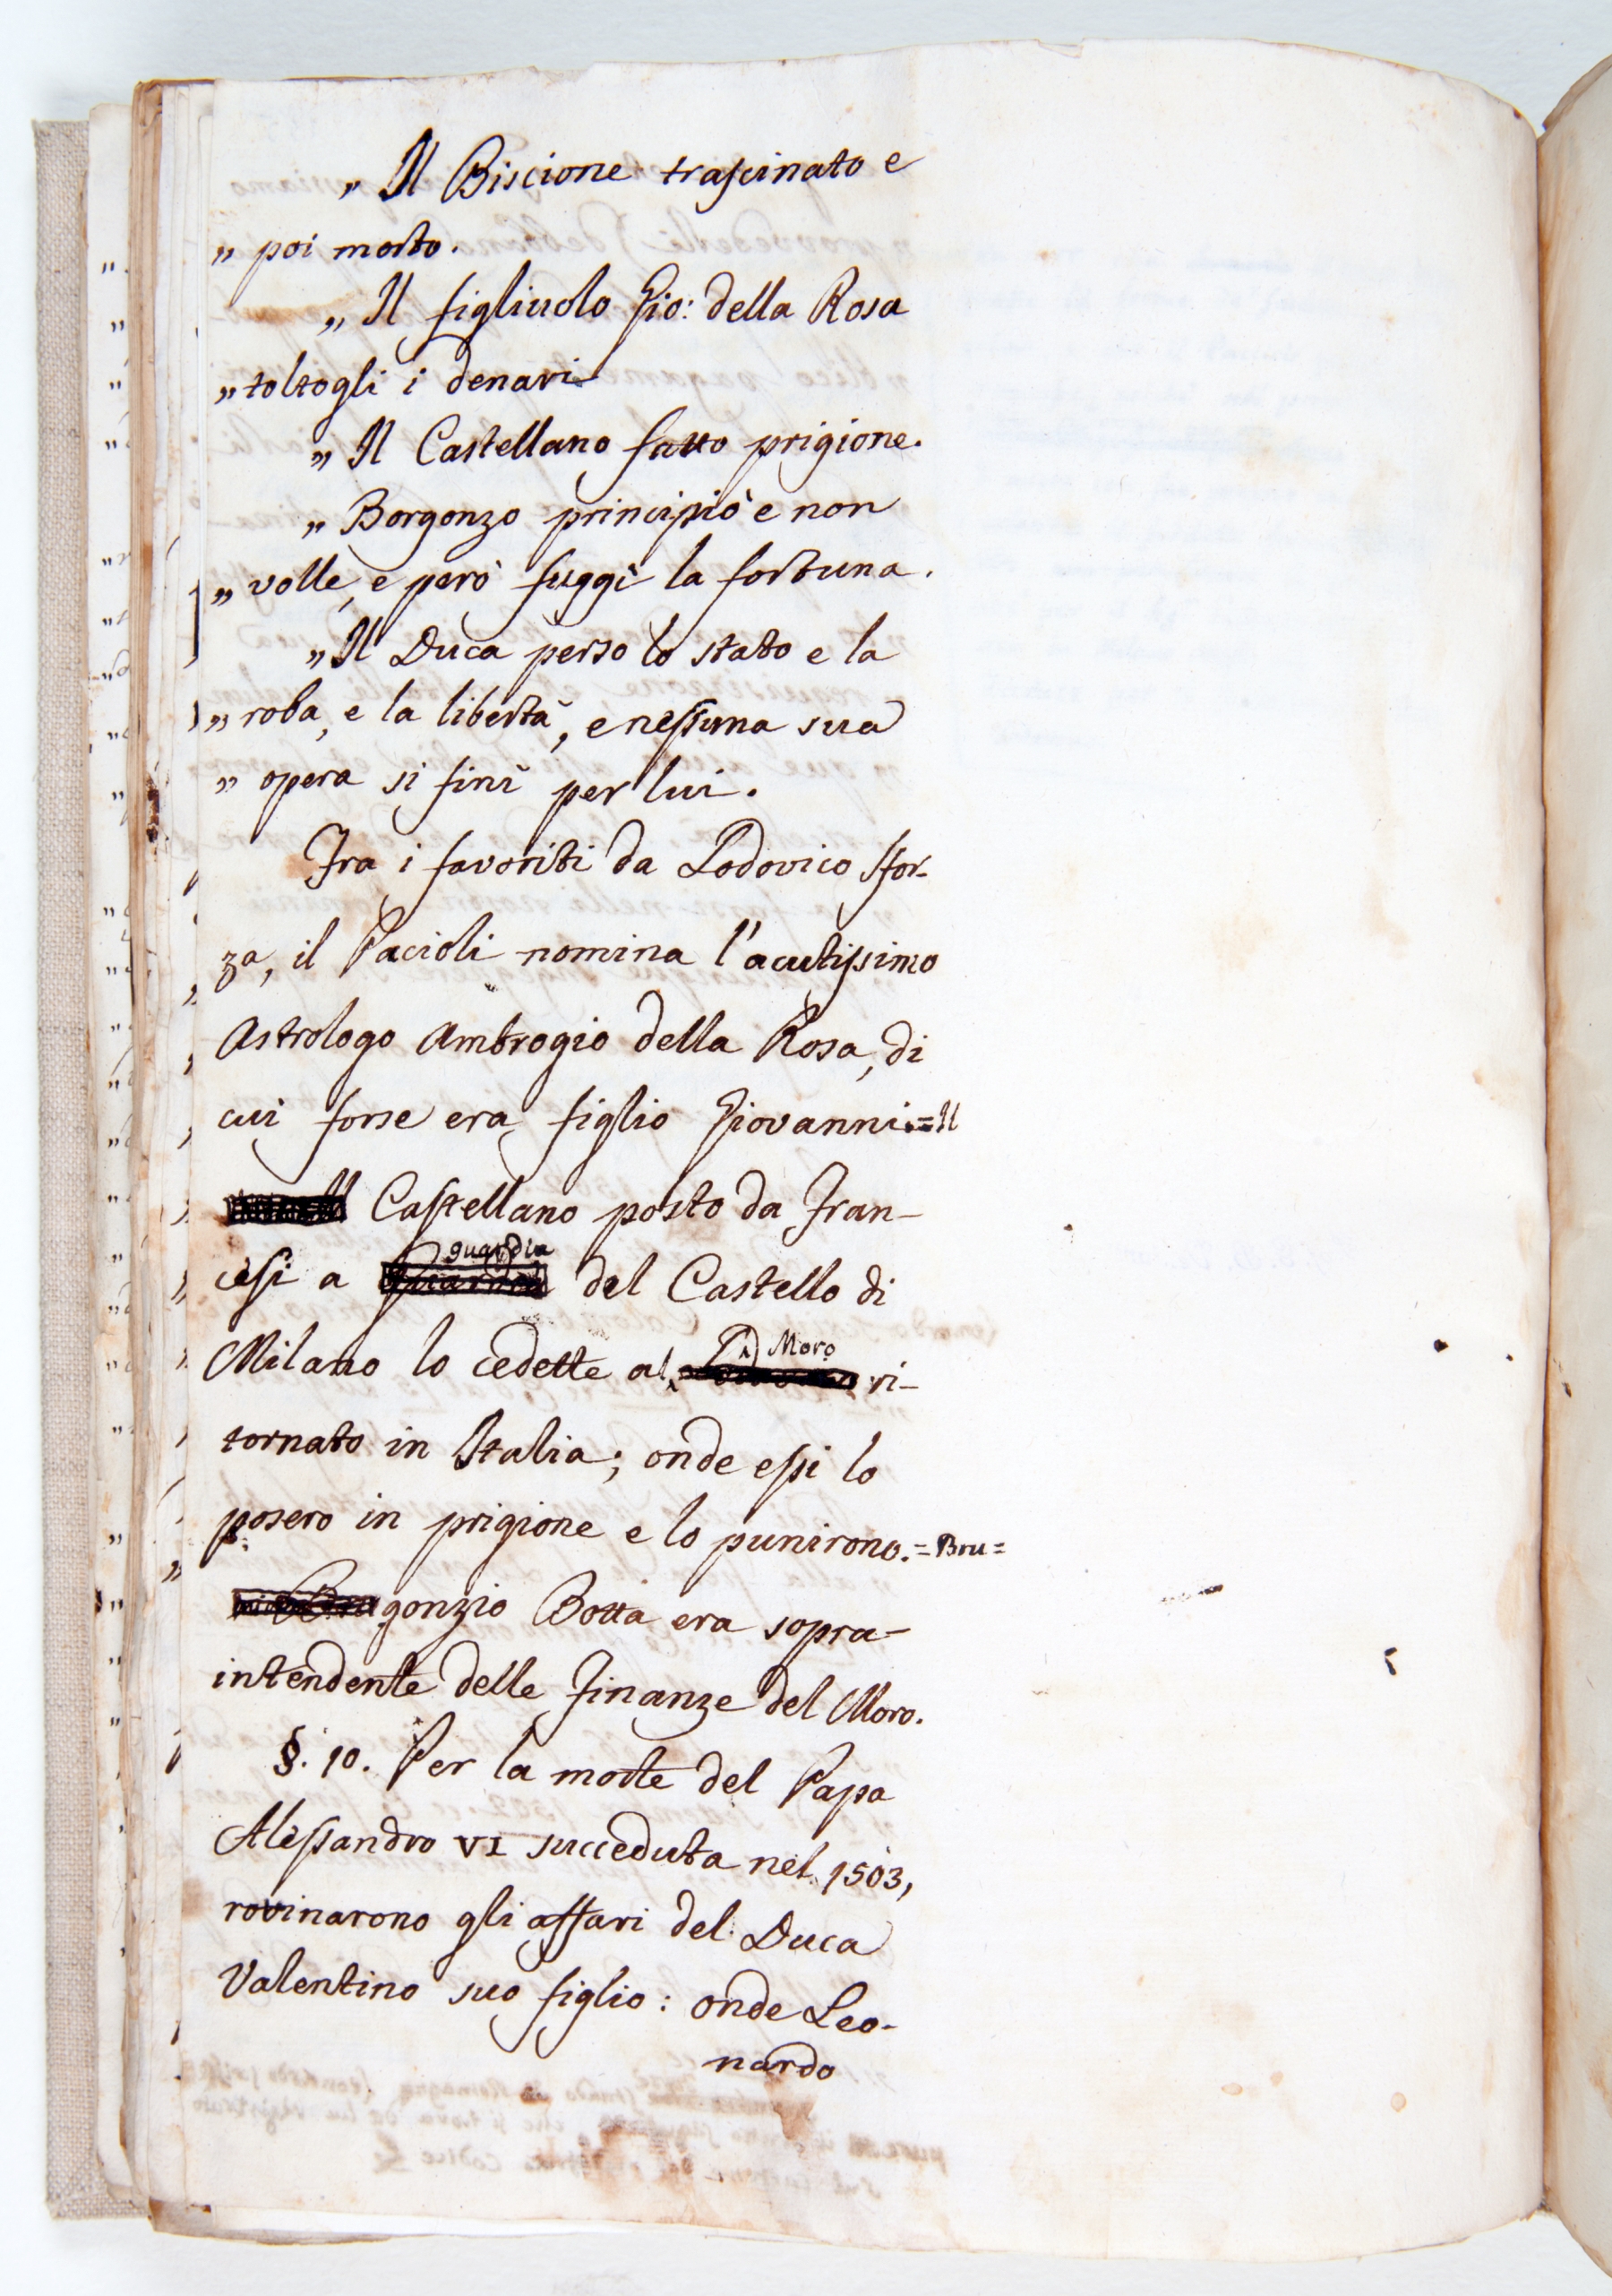 „ Il Biscione trascinato e
„ poi morto.
„ Il figliuolo Gio: della Rosa
„ toltogli i denari
„ Il Castellano fatto prigione.
„ Borgonzo principiò e non
„ volle, e però fuggì la fortuna.
„ Il Duca perso lo stato e la
„ roba, e la libertà, e nessuna sua
„ opera si finì per lui.
Fra i favoriti da Lodovico Sfor-
za, il Pacioli nomina l'acutissimo
Astrologo Ambrogio della Rosa, di
cui forse era figlio Giovanni.=Il
Castellano posto da Fran-
cesi a guardia del Castello di
Milano lo cedette al Moro ri-
tornato in Italia; onde essi lo
posero in prigione e lo punirono.=Bru=
gonzio Botta era sopra-
intendente delle Finanze del Moro.
§. 10. Per la morte del Papa
Alessandro VI succeduta nel 1503,
rovinarono gli affari del Duca
Valentino suo figlio: onde Leo-
nardo